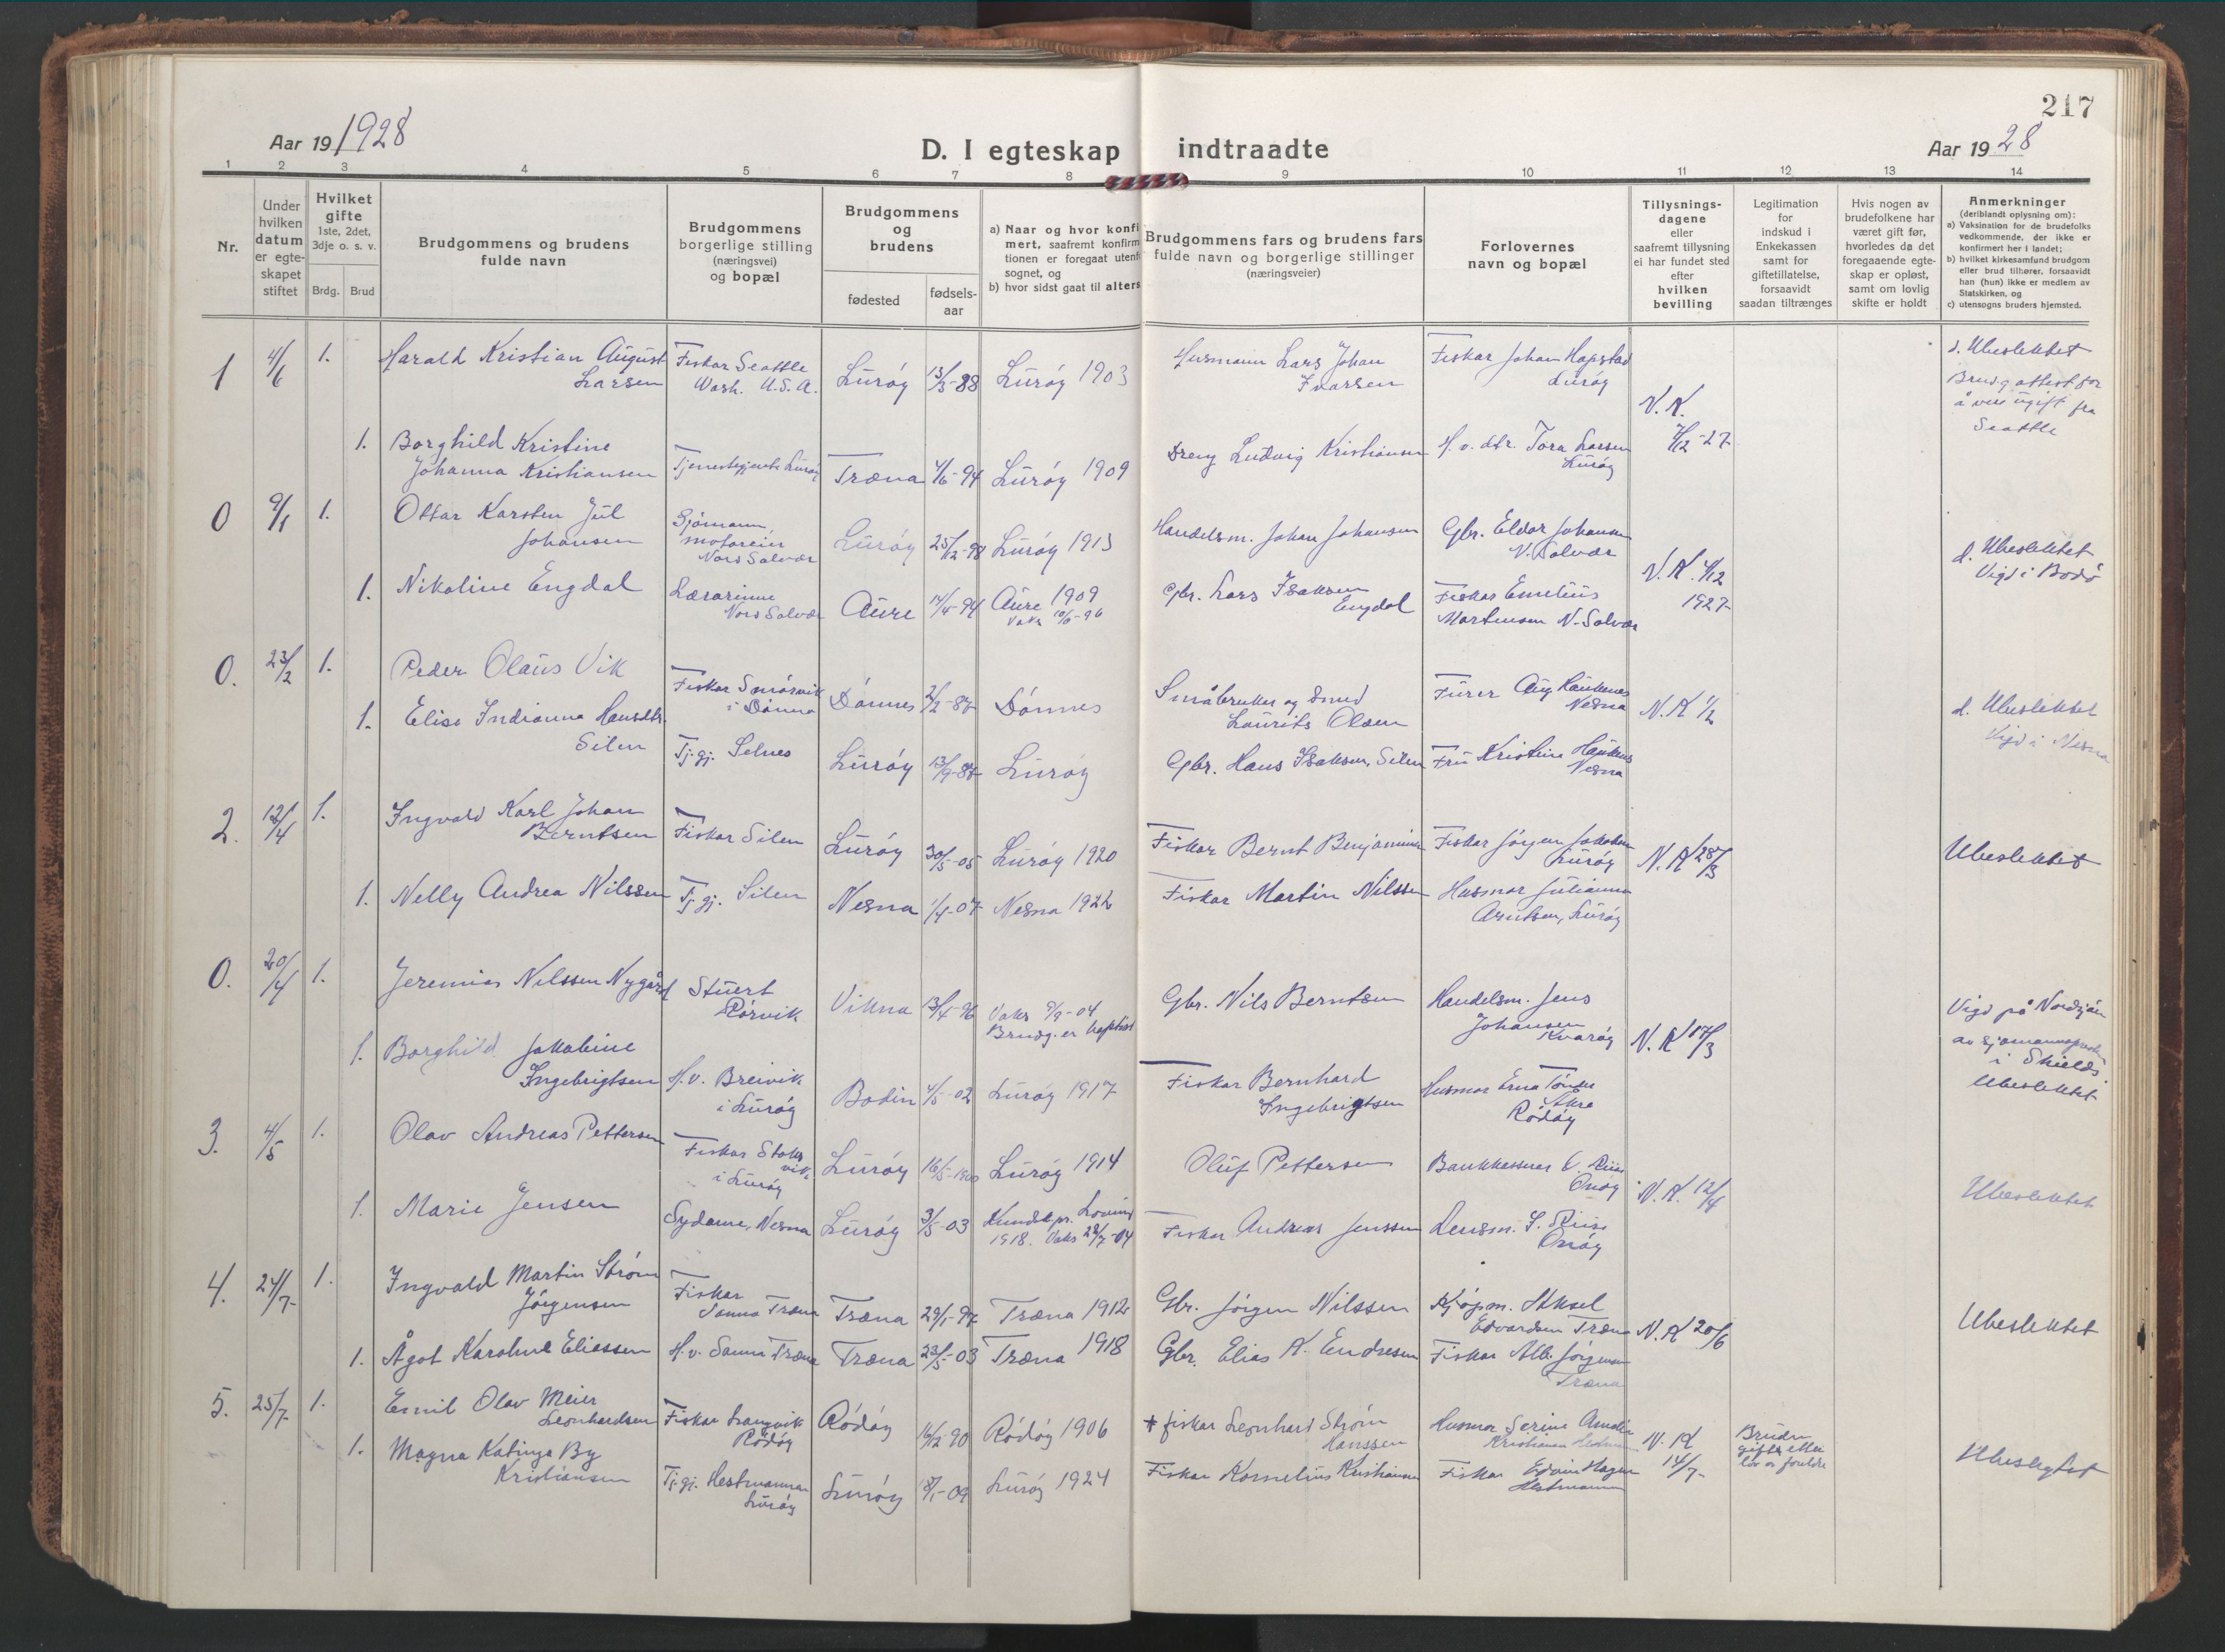 217
Aar 19 1928
D. I egteskap indtraadte
Aar 19 28
1 2 3 4 5 6 7 8 9 10 11 12 13 14
Nr.
Under
hvilken
datum
er egte-
skapet
stiftet
Hvilket
gifte
1ste, 2det,
3dje o. s. v.
Brdg. Brud
Brudgommens og brudens
fulde navn
Brudgommens
borgerlige stilling
(næringsvei)
og bopæl
Brudgommens
og
brudens
fødested
fødsels-
aar
a) Naar og hvor konfi
mert, saafremt konfirm
tionen er foregaat utenf
sognet, og
b) hvor sidst gaat til alters
Brudgommens fars og brudens fars
fulde navn og borgerlige stillinger
(næringsveier)
Forlovernes
navn og bopæl
Tillysnings-
dagene
eller
saafremt tillysning
ei har fundet sted
efter
hvilken
bevilling
Legitimation
for
indskud i
Enkekassen
samt for
giftetillatelse,
forsaavidt
saadan tiltrænges
Hvis nogen av
brudefolkene har
været gift før,
hvorledes da det
foregaaende egte-
skap er opløst,
samt om lovlig
skifte er holdt
Anmerkninger
(deriblandt oplysning om):
a) Vaksination for de brudefolks
vedkommende, der ikke er
konfirmert her i landet;
b) hvilket kirkesamfund brudgom
eller brud tilhører, forsaavidt
han (hun) ikke er medlem av
Statskirken, og
c) utensogns bruders hjemsted.
1 4/6 1. Harald Kristian August
Larsen
Fiskar Seattle
Wash. U.S.A.
Lurøy 13/3-88 Lurøy 1903
Husmann Lars Johan
Ivarsen
Fiskar Johan Hapstad
Lurøy
N.K.
/12-27
d. Ubeslektet
Brudg attest for
å vere ugift fra
Seattle
1. Borghild Kristine
Johanna Kristiansen
Tjenestegjente Lurøy
Træna /6-94 Lurøy 1909
Dreng Ludvig Kristiansen
H.v. dtr. Tora Larsen
Lurøy
0 9/1 1. Ottar Karsten Jul
Johansen
Sjømann,
motoreier
Nord Solvær
Lurøy 25/12-98 Lurøy 1913
Handelsm. Johan Johansen
Gbr. Eldor Johansen
N. Solvær
N.K. /12
1927
d. Ubeslektet
Vigd i Bodø
1. Nikoline Engdal
Lærarinne
Nord Solvær
Aure 14/4-94 Aure 1909
Vaks 10/6-96
Gbr. Lars Isaksen
Engdal
Fiskar Emelius
Martensen N. Solvær
0. 23/2 1. Peder Olaus Vik
Fiskar Smørvik
i Dønna
Dønnes 2/2-87 Dønnes
Småbruker og smed
Laurits Olsen
Furer Aug Haukenes
Nesna
N.K 1/2
d. Ubeslektet
Vigd i Nesna
1. Elise Indianna Hansdtr.
Silen
Tj.gj. Selnes
Lurøy 13/9-87 Lurøy
Gbr. Hans Isaksen, Silen
Fru Kristine Haukenes
Nesna
2. 12/4 1. Ingvald Karl Johan
Berntsen
Fiskar Silen
Lurøy 30/5-05 Lurøy 1920
Fiskar Bernt Benjaminsen
Fiskar Jørgen Jakobsen
Lurøy
N.K 28/3
Ubeslektet
1. Nelly Andrea Nilssen
Tj.gj. Silen
Nesna 1/4-07 Nesna 1922
Fiskar Martin Nilssen
Husmor Julianna
Arntsen, Lurøy
0. 20/4 1. Jeremias Nilssen Nygård
Stuert
Rørvik
Vikna 13/4-96 Vaks 9/9-04
Brudg. er baptist
Gbr. Nils Berntsen
Handelsm. Jens
Johansen
Kvarøy
N.K 17/3
Vigd på Nordsjøen
av sjømannsprest
i Shields
Ubeslektet
1. Borghild Jakobine
Ingebrigtsen
H.v. Breivik
i Lurøy
Bodin 4/5-02 Lurøy 1917
Fiskar Bernhard
Ingebrigtsen
Husmor Erna Tønder
Rødøy
3. 4/5 1. Olav Andreas Pettersen
Fiskar Stoks
vik
i Lurøy
Lurøy 16/5-1900 Lurøy 1914
Oluf Pettersen
Bankkasserer Riise
Onøy
N.K. 12/4
Ubeslektet
1. Marie Jensen
Sydame, Nesna
Lurøy 3/5-03 Kundskpr. Lovund
1918. Vaks 28/7-04
Fiskar Andreas Jenssen
Lensm. S. Riise
Onøy
4. 24/7 1. Ingvald Martin Strøm
Jørgensen
Fiskar
Sanna Træna
Træna 29/1-97 Træna 1912
Gbr. Jørgen Nilssen
Kjøpm. Aksel
Edvardsen Træna
N.K 20/6
Ubeslektet
1. Ågot Karoline Eliassen
H.v. Sanna Træna
Træna 23/5-03 Træna 1918
Gbr. Elias A. Endresen
Fiskar Alb. Jørgensen
Træna
5. 25/7 1. Emil Olav Meier
Leonhardsen
Fiskar Langvik
Rødøy
Rødøy 16/2-90 Rødøy 1906
+ fiskar Leonhard Strøm
Hanssen
Husmor Serine Amalie
Kristiansen
N.K
14/7
Bruden
gifts etter
lov av foreldre
Ubeslegtet
1. Magna Katinga By
Kristiansen
Tj.gj. Hestmannen
Lurøy
Lurøy 18/1-09 Lurøy 1924
Fiskar Kornelius Kristiansen
Fiskar Edvin Hagen
Hestmannen